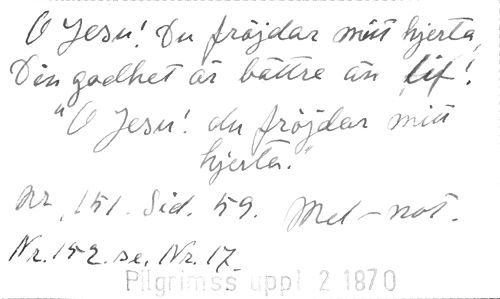 O Jesu! Du fröjdar mitt hjerta,
Din godhet är bättre än lif!
"O Jesu! du fröjdar mitt
hjerta."
Nr. 151. Sid. 59. Mel-not.
Nr. 152. se. Nr. 17.
Pilgrimss uppl 2 1870